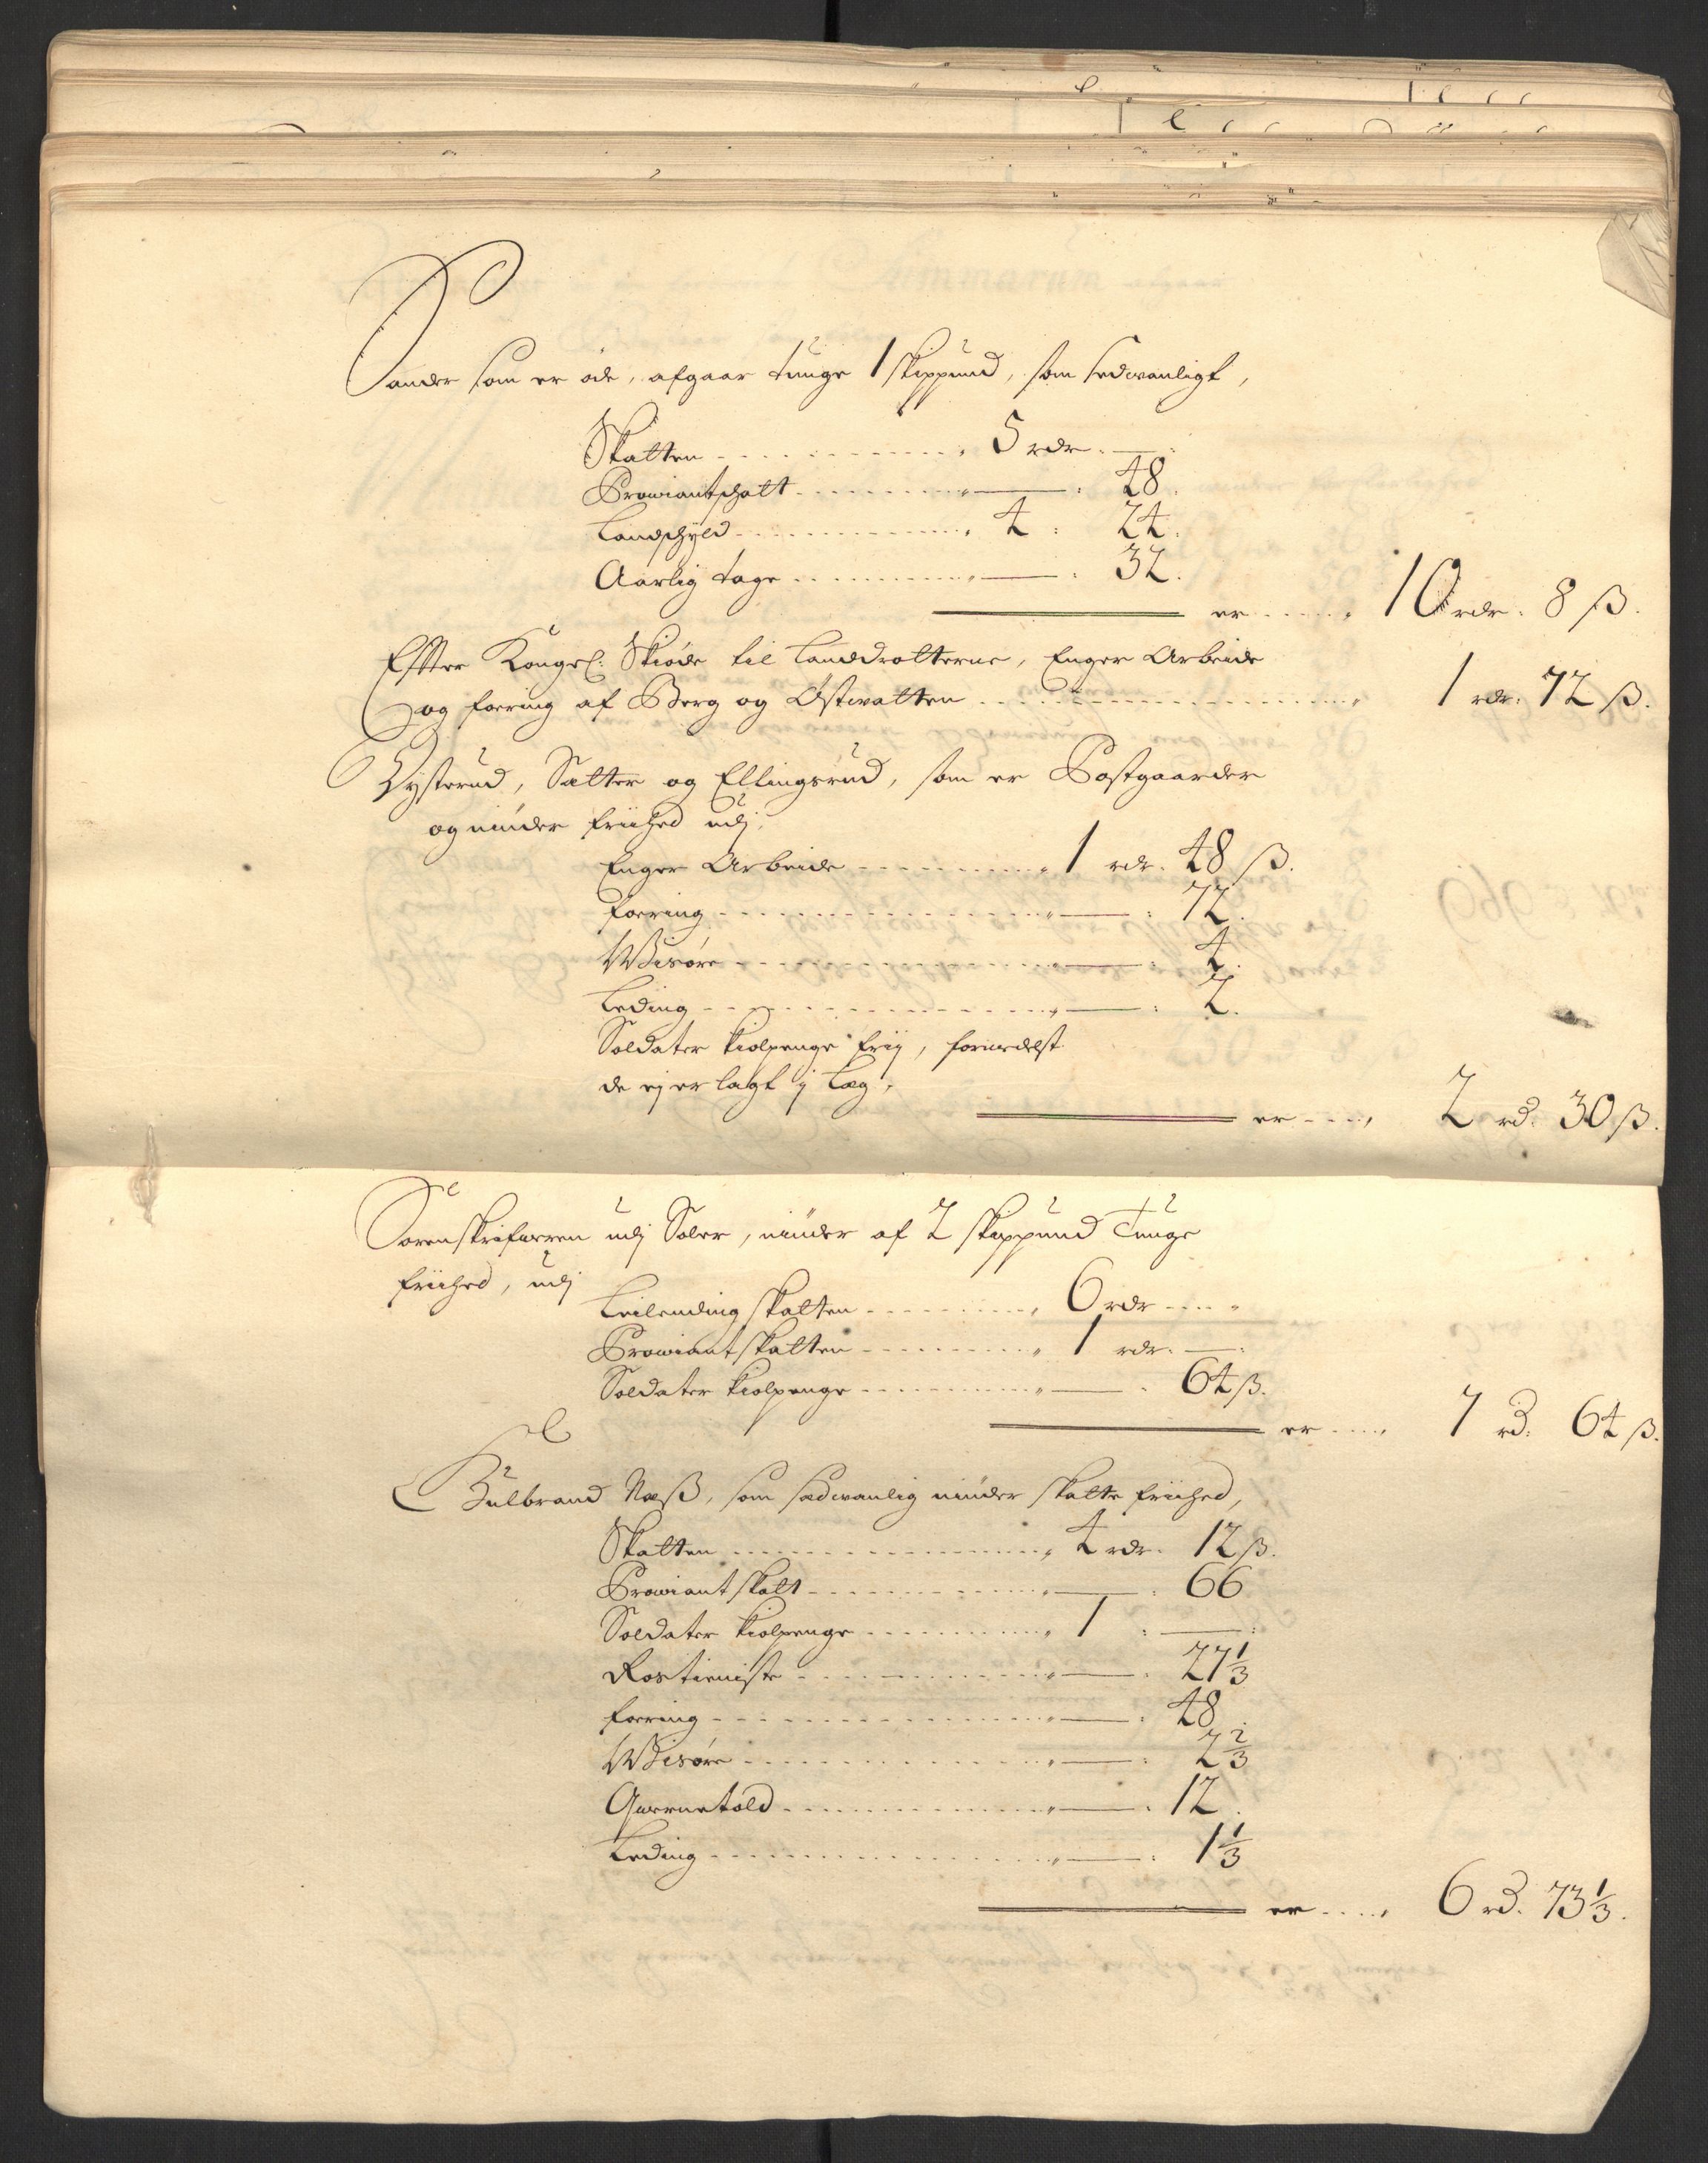 Sander som er øde, afgaar tunge 1 skippund, som sedvanligt,
Skatten - - - 5 rdr. —
Proviantschatt - - - — : 48.
Landschyld - - - 4 : 24.
Aarlig tage - - - — : 32.
er - - - 10 rdr. 8 ß.
Effter Kongel: Skiøde til Landdrotterne, Enger Arbeide
og foering af Berg og Østvatten - - - 1 rdr. 72 ß.
Dysterud, Sætter og Ellingsrud, som er Postgaarder
og niuder friihed udj,
Enger Arbeide - - - 1 rdr. 48 ß.
foering - - - — : 72.
Wisøre - - - — : 4.
Leding - - - — : 2.
Soldater Kiolpenge frij, formedelst
de ej er lagt j Læg,
er - - - 2 rd. 30 ß.
Sorenskrifueren udj Soløer, niuder af 2 skippund Tunge
friihed, udj
Leilending skatten - - - 6 rdr - - -
Proviantskatten - - - 1 rdr. —
Soldater Kiolpenge - - - — . 64 ß.
er - - - 7 rd. 64 ß.
Gulbrand Næß, som sædvanlig niuder skatte friihed,
Skatten - - - 4 rdr. 12 ß.
Proviantskatt - - - — : 66
Soldater Kiolpenge - - - 1 : —
Rostieniste - - - — . 27 1/3
foering - - - — : 48.
Wisøre - - - — : 2 2/3
Quernetold - - - — . 12.
Leding - - - — : 1 1/3
er - - - 6 rd. 73 1/3.